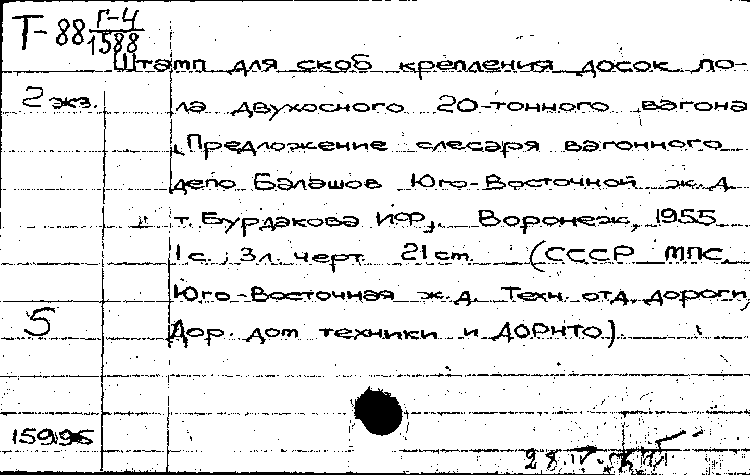 Т-88 Г-4/1588
Штамп для скоб крепления досок по-
2 экз. ла двухосного 20-тонного вагона
(Предложение слесаря вагонного
депо Балашов Юго-Восточной ж.д.
т. Бурдакова ИФ), Воронеж, 1955
1с., 3л. черт 21 см. (СССР МПС,
Юго-Восточная ж.д. Техн. отд. дороги,
5 Дор. дом техники и ДОРНТО).
15995